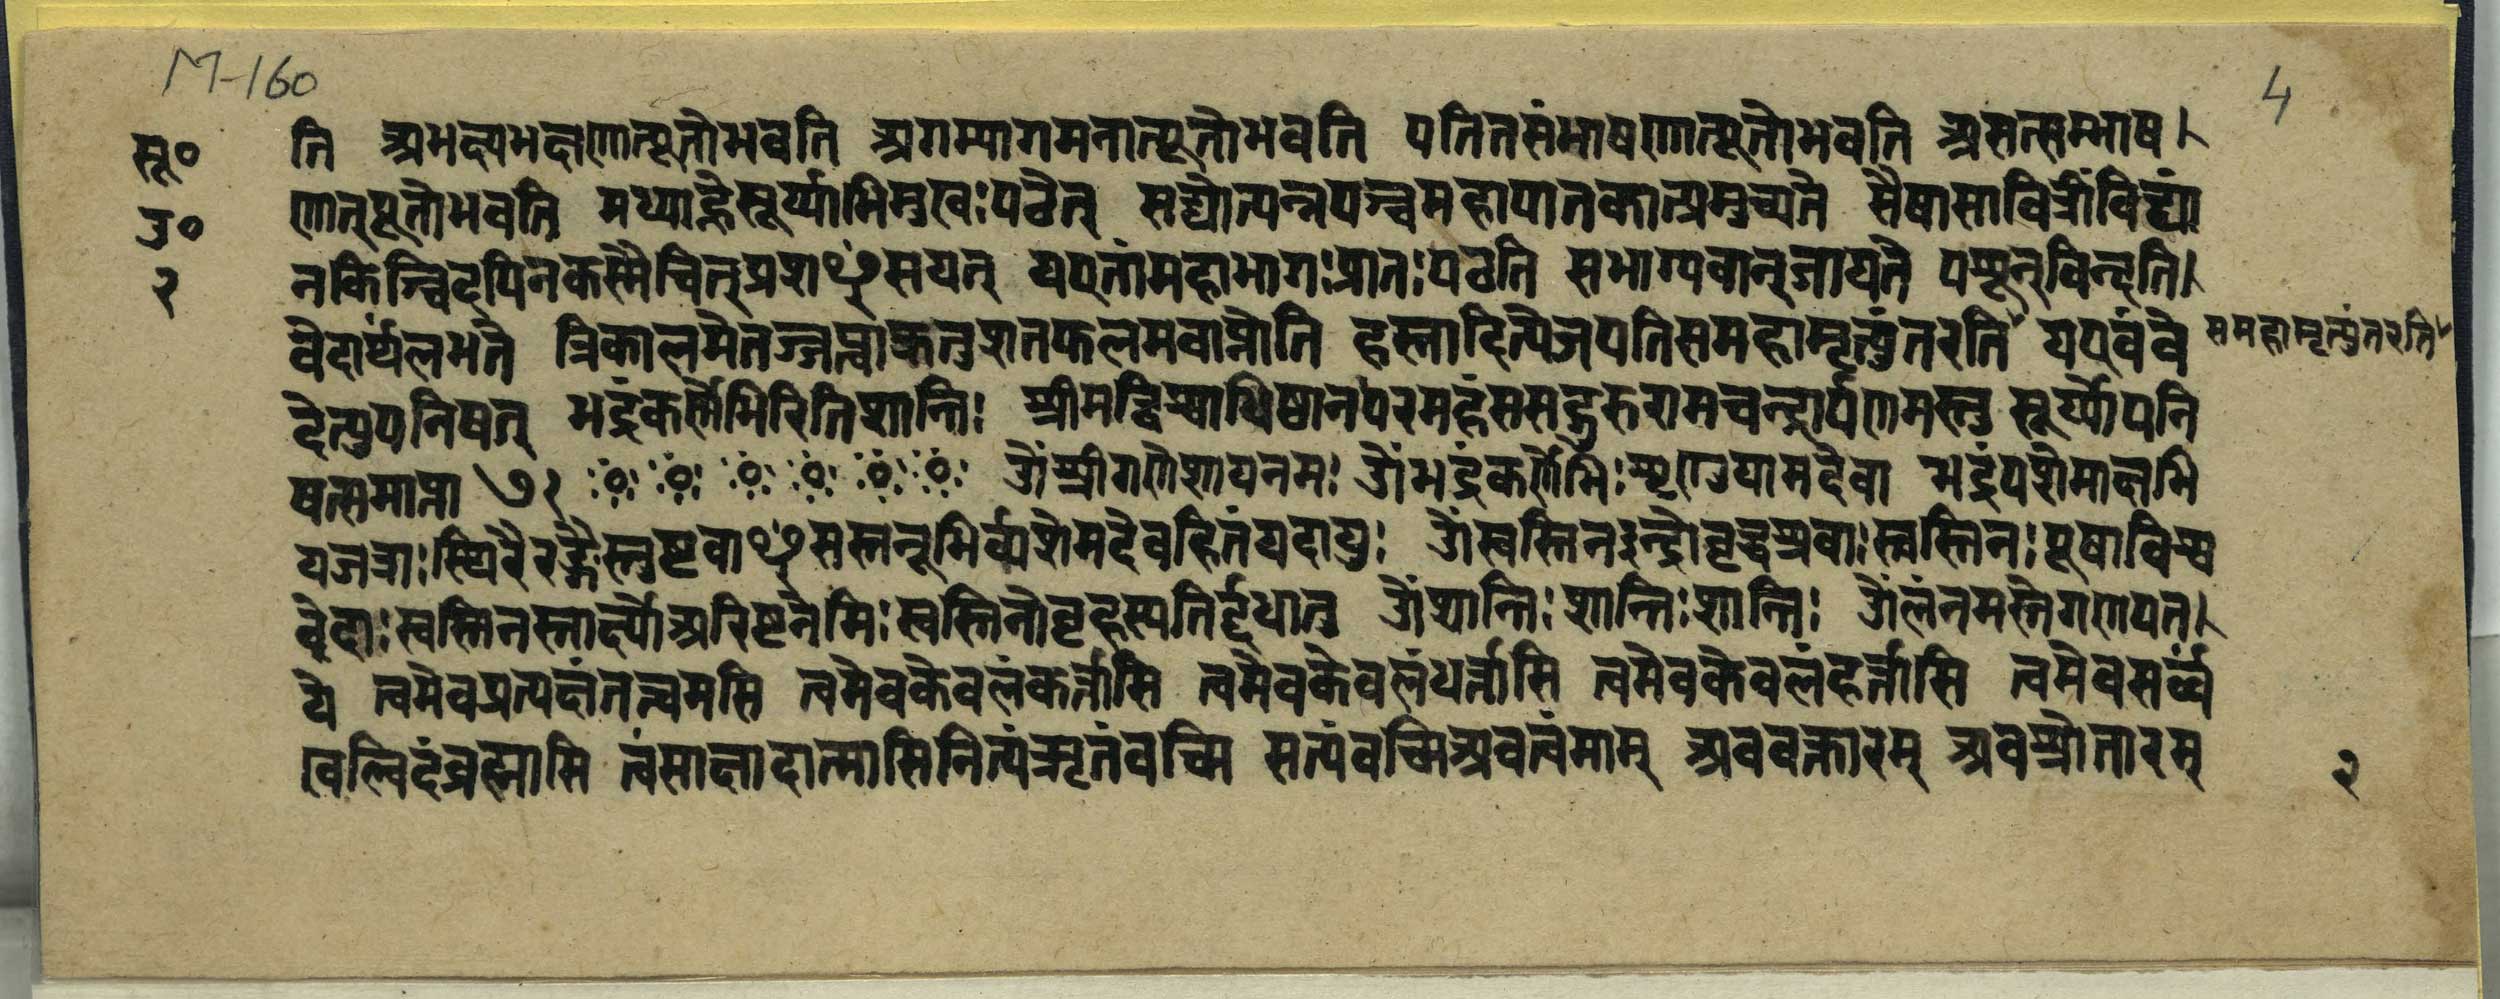 M-160
4
सू० ति अभक्ष्यभक्षणात्पूतोभवति अगम्यागमनात्पूतोभवति पतितसंभाषणात्पूतोभवति असत्सम्भाष
उ० णात्पूतोभवति मध्याह्नेसूर्य्याभिमुखःपठेत् सद्योत्पन्नपञ्चमहापातकात्प्रमुच्यते सैषासावित्रींविद्यां
२ नकिञ्चिदपिनकस्मैचित्प्रशꣳसयत् यएतांमहाभागःप्रातःपठति सभाग्यवान्जायते पशून्विन्दति
वेदार्थंलभते त्रिकालमेतज्जप्त्वाक्रतुशतफलमवाप्नोति हस्तादित्येजपतिसमहामृत्युंतरति यएवंवे समहामृत्युंतरति
देत्युपनिषत् भद्रंकर्णेभिरितिशान्तिः श्रीमद्विश्वाधिष्ठानपरमहंससद्गुरुरामचन्द्रार्पणमस्तु सूर्य्योपनि
षत्समाप्ता ७१ ॐश्रीगणेशायनमः ॐभद्रंकर्णेभिःशृणुयामदेवा भद्रंपशेमाक्षभि
यजत्राःस्थिरैरङ्गैस्तुष्टवाꣳसस्तनूभिर्व्यशेमदेवहितंयदायुः ॐस्वस्तिनइन्द्रोवृद्धश्रवाःस्वस्तिनःपूषाविश्व
वेदाःस्वस्तिनस्तार्क्ष्योअरिष्टनेमिःस्वस्तिनोबृहस्पतिर्द्दधातु ॐशान्तिःशान्तिःशान्तिः ॐलंनमस्तेगणपत
ये त्वमेवप्रत्यक्षंतत्त्वमसि त्वमेवकेवलंकर्त्तासि त्वमेवकेवलंधर्त्तासि त्वमेवकेवलंहर्त्तासि त्वमेवसर्व्वं
खल्विदंब्रह्मासि त्वंसाक्षादात्मासिनित्यंऋतंवच्मि सत्यंवच्मिअवत्वंमाम् अववक्तारम् अवश्रोतारम्
२